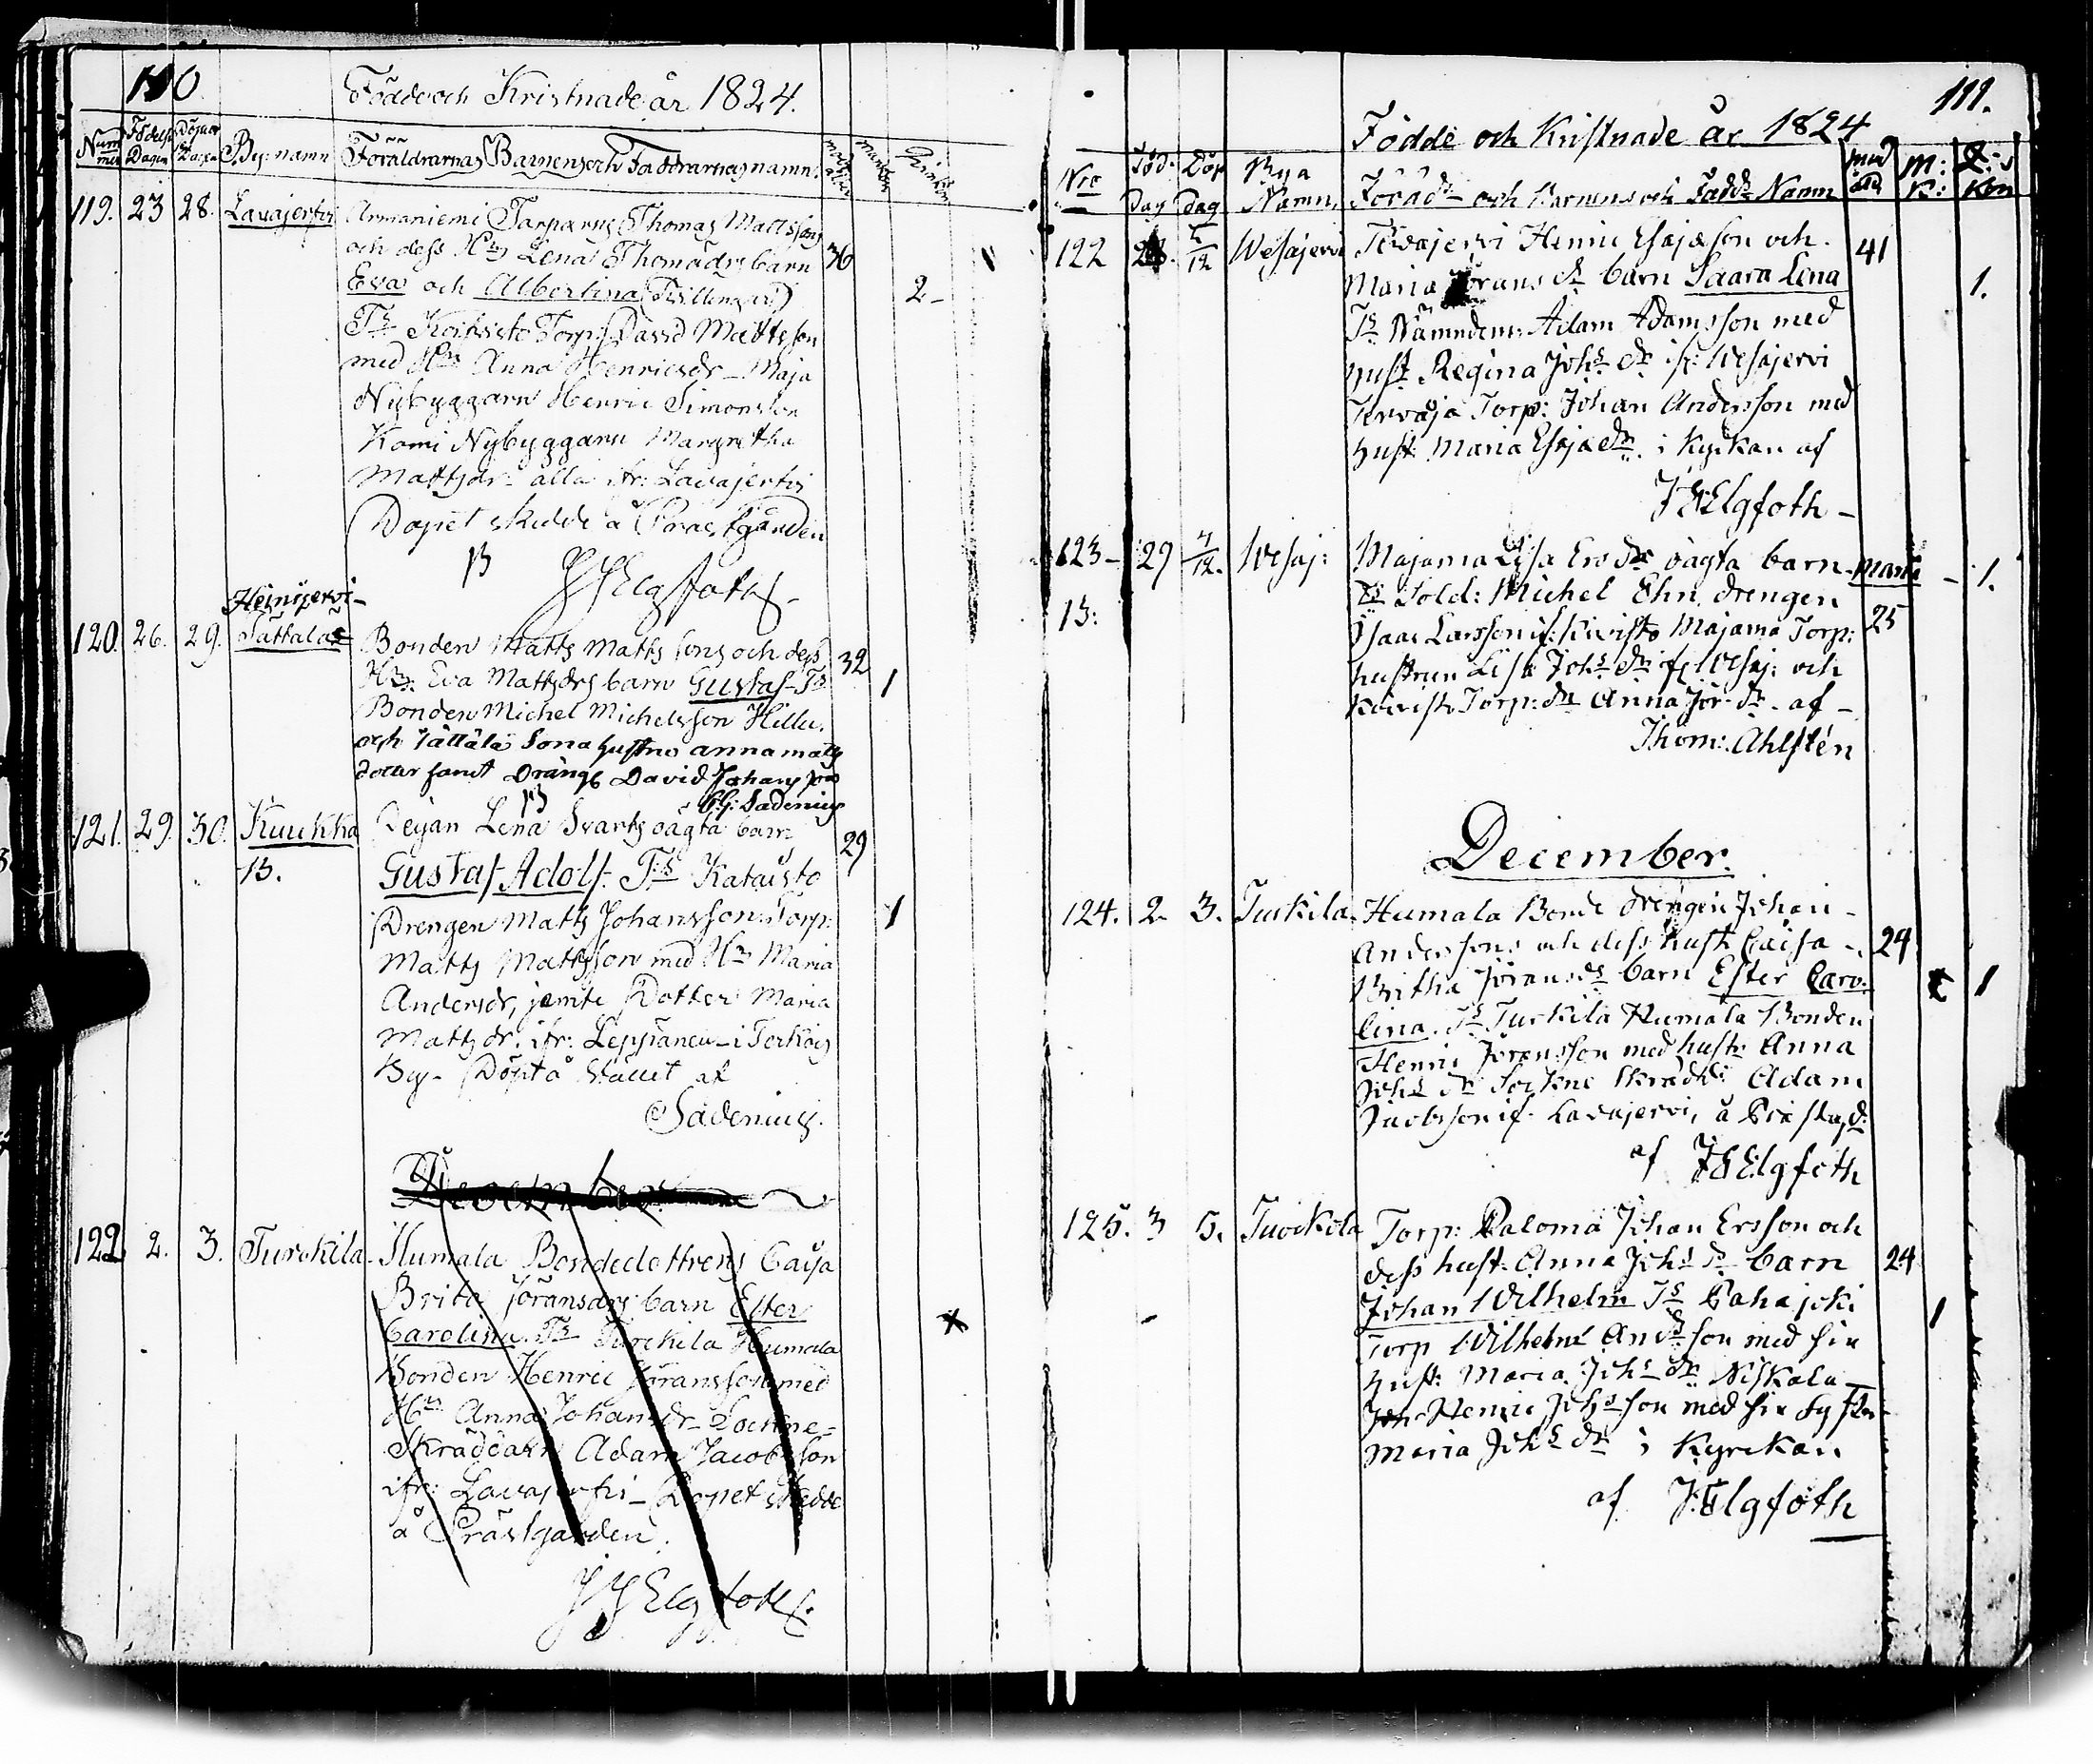 110
Födde och Kristnade år 1824.
Nummer Födelse Dagen Döpelse Dagen By: namn Föräldrarnas Barnens och Faddrarnas namn
119. 23 28. Lavajerfvi Armaniemi Torparns Thomas Mattssons
och dess H:s Lena Thomædrs barn 36
Eva och Albertina (Tvillingar) 2
Ts Koivisto Torp: David Mattsson
med H:n Anna Henricsdr Maja
Nybyggarn Henric Simonsson
Komi Nybyggarn Margretha
Mattsdr alla ifr: Lavajerfvi
Dopet skedde å Prästgården
JHElgfoth
Heinijervi
120. 26. 29. Sättälä Bonden Matts Mattssons och dess 32
H:s Eva Mattsdrs barn Gustaf Ts 1
Bonden Michel Michelsson Hillu.
och Sättälä Sona hustru anna matts
dotter samt Dräng David Johans son
C.G: Sadenius
121. 29. 30. Kuukka Pigan Lena Svarts oägta barn 29
B. Gustaf Adolf. Ts Kataisto
Drengen Matts Johansson Torp: 1
Matts Mattsson med H:n Maria
Andersdr, jemte Dotter Maria
Mattsdr. ifr: Leppänen i Torkois
By. Döpt å Stället af
Sadenius.
December
122 2. 3. Turckila Humala Bondedottrens Caisa
Brita Jöransdrs barn Ester
Carolina. Ts Turckila Humala
Bonden Henric Jöransson med
H:n Anna Johansdr Sockne-
Skräddarn Adam Jacobsson
ifr: Lavajerfvi Dopet skedde
å Prästgården.
JHElgfoth
111.
Födde och Kristnade År 1824
Nro Föd. Dag Döp dag Bya Namn. Föräd: och Barnens och Fadd: Namn M: K: Q:s Kön
122 5/12 Wesajervi Henric Esajæson och 41
Maria Jörans dr barn Saara Lena 1.
Ts Nämndem: Adam Adamsson med
hust Regina Johs dr if: Wesajervi
Torp: Johan Andersson med
hust: Maria Esajædr. i Kyrkan af
JHElgfoth
123 29 4/12. Wesaj: Majama Lisa Ers dr oägta barn Maria 1.
B: Ts Sold: Michel Ehn drengen
Isaac Larsson if: Kivisto Majama Torp: 25
hustrun Lisa Johs dr if Wesaj: och
Kivisto Torp: dr Anna Jör dr af
Thom: Ahlstén
December.
124. 2 3. Turkila Humala Bonde drengen Johan
Anderssons och dess hust Caisa 29
Britha Jörans ds barn Ester Caro- 1
lina. Ts Turkila Humala Bonden
Henric Jöransson med hustr Anna
Johs dr Sockne Skrädd: Adam
Jacobsson if. Lavajervi, å Prästgd:
af JHElgfoth
125. 3 5. Turckila Torp: Paloma Johan Ersson och
dess hust: Anna Johs dr barn 24
Johan Wilhelm Ts Pahajoki 1
Torp Wilhelm And:son med sin
hust: Maria Johs dr Niskala
Henric Johs son med sin syster
Maria Johs dr i Kyrckan
af JHElgfoth